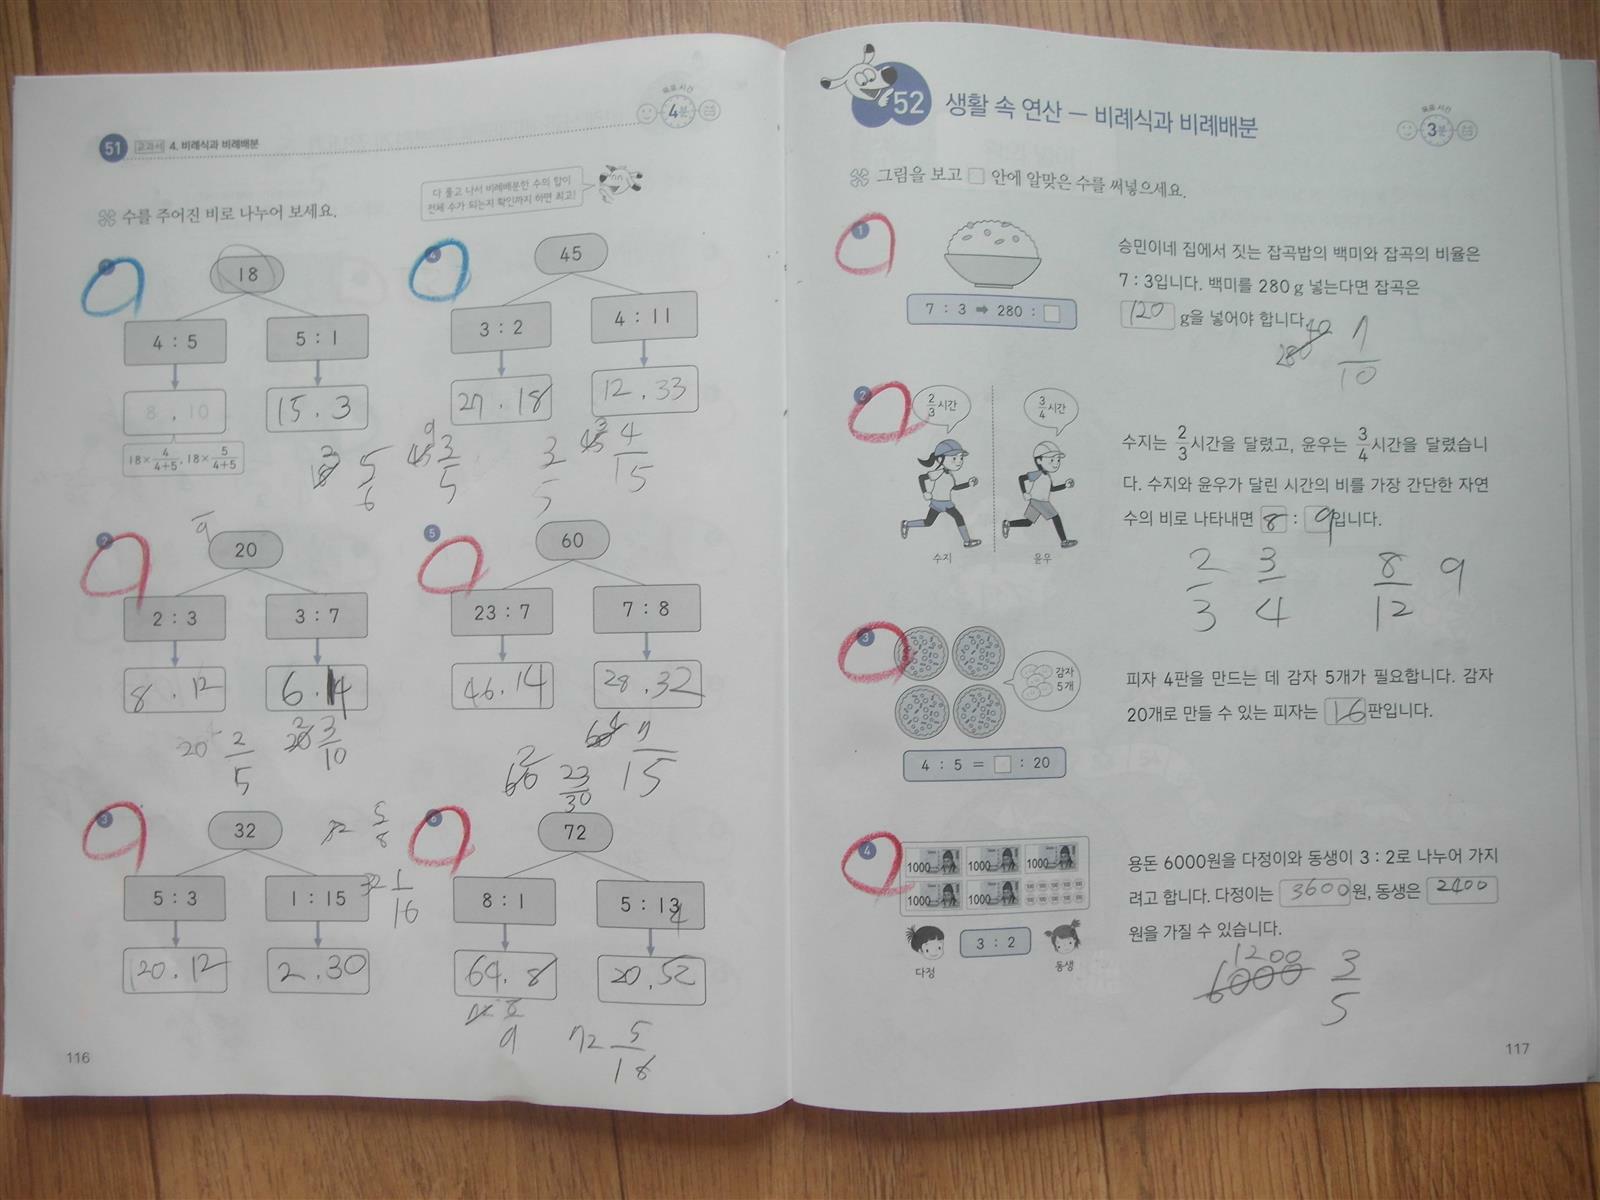 51 교과서 4. 비례식과 비례배분
목표 시간
4분
다 풀고 나서 비례배분한 수의 합이
전체 수가 되는지 확인까지 하면 최고!
수를 주어진 비로 나누어 보세요.
1
18
4 : 5
5 : 1
8 , 10
15 . 3
18×4/4+5, 18×5/4+5
5/6
4
45
3 : 2
4 : 11
27 . 18
12 . 33
9
45 3/5
3/5
3
45 4/15
2
9
20
2 : 3
3 : 7
8 . 12
6 . 14
20 2/5
2
20 3/10
5
60
23 : 7
7 : 8
46 . 14
28 . 32
2
60 23/30
4
60 7/15
3
32
5 : 3
1 : 15
20 . 12
2 . 30
32 5/8
32 1/16
6
72
8 : 1
5 : 13
64 . 8
20 . 52
72 8/9
72 5/18
116
52 생활 속 연산 – 비례식과 비례배분
목표 시간
3분
그림을 보고 □ 안에 알맞은 수를 써넣으세요.
1
7 : 3 ➡ 280 : □
승민이네 집에서 짓는 잡곡밥의 백미와 잡곡의 비율은
7 : 3입니다. 백미를 280 g 넣는다면 잡곡은
120 g을 넣어야 합니다.
40
280 7/10
2
2/3시간
3/4시간
수지
윤우
수지는 2/3시간을 달렸고, 윤우는 3/4시간을 달렸습니
다. 수지와 윤우가 달린 시간의 비를 가장 간단한 자연
수의 비로 나타내면 8 : 9입니다.
2/3 3/4 8/12 9
3
감자
5개
4 : 5 = □ : 20
피자 4판을 만드는 데 감자 5개가 필요합니다. 감자
20개로 만들 수 있는 피자는 16판입니다.
4
1000 1000 1000
1000 1000
다정
3 : 2
동생
용돈 6000원을 다정이와 동생이 3 : 2로 나누어 가지
려고 합니다. 다정이는 3600원, 동생은 2400
원을 가질 수 있습니다.
1200
6000 3/5
117